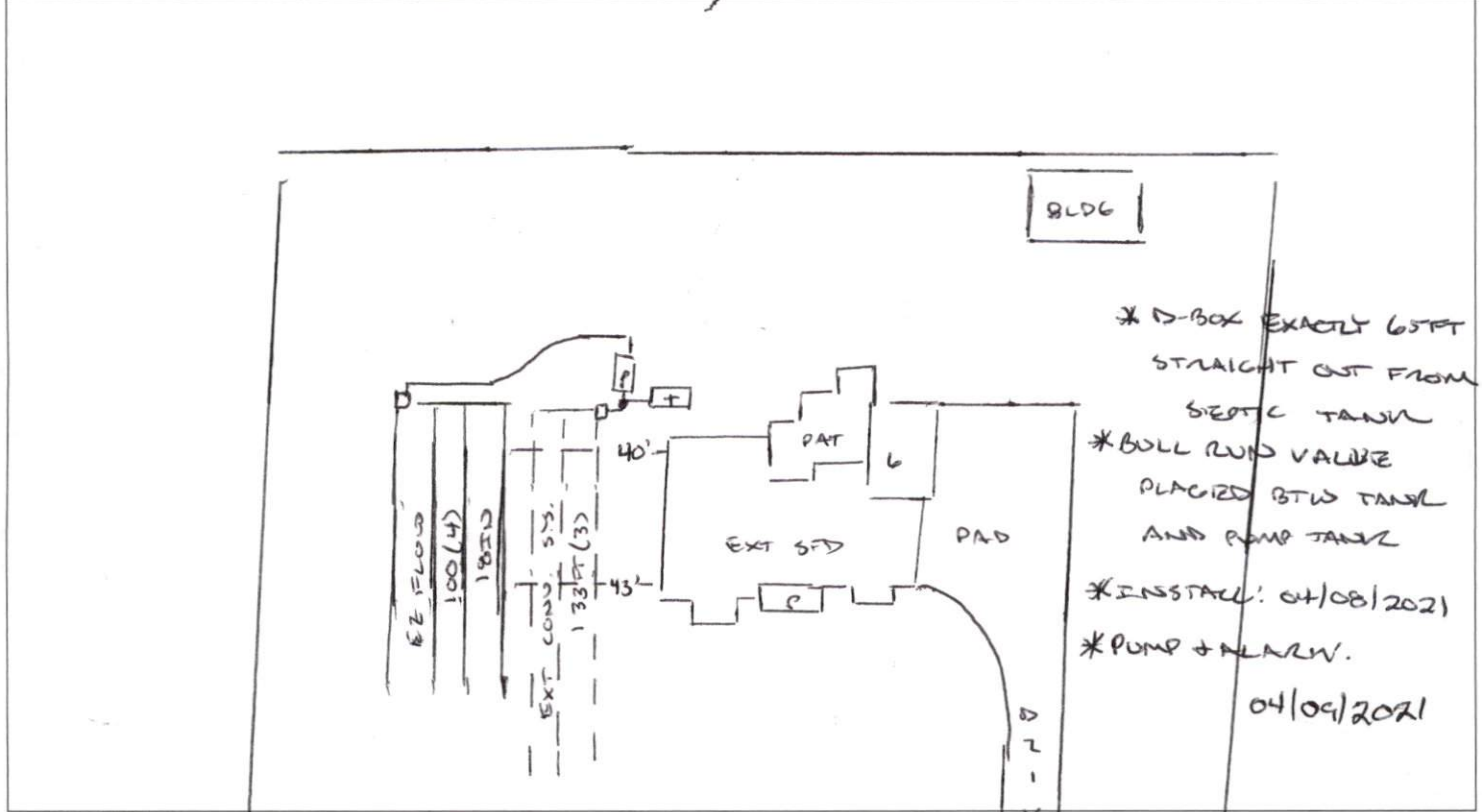 BLDG
* D-BOX EXACTLY 65FT
STRAIGHT OUT FROM
SEPTIC TANK
* BULL RUN VALVE
PLACED BTW TANK
AND PUMP TANK
* INSTALL: 04/08/2021
* PUMP + ALARM.
04/09/2021
P
T
40'
43'
PAT
6
EXT SFD
PAD
P
EZ FLOW
100(4)
18IN
EXT CONV. S.S.
133FT(3)